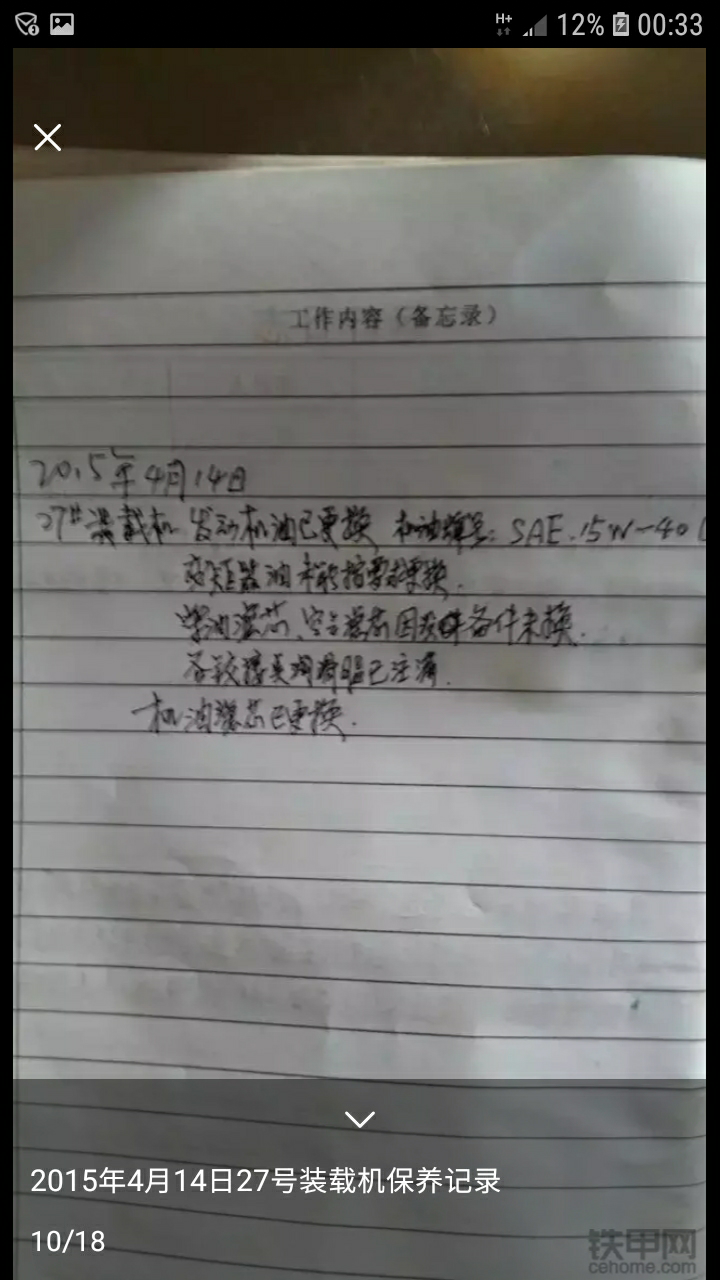 H+ 12% 00:33
工作内容（备忘录）
2015年4月14日
27#装载机 发动机油已更换 机油牌号: SAE.15W-40
变矩器油未能按要求更换.
柴油滤芯、空气滤芯因没有备件未换.
各铰接点润滑脂已注满.
机油滤芯已更换.
2015年4月14日27号装载机保养记录
10/18
铁甲网
cehome.com